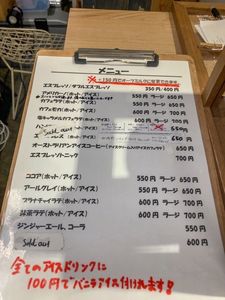 メニュー
※+150円でオーツミルクに変更できます。
エスプレッソ/ダブルエスプレッソ 350円/400円
アメリカーノ(ホット/アイス) 550円 ラージ 650円
カフェラテ(ホット/アイス) 550円 ラージ 650円
カフェモカ(ホット/アイス) 600円 ラージ 700円
塩キャラメルカフェラテ(ホット/アイス) 600円 ラージ 700円
ハニー Sold out 650円
エ 650円
オーストラリアンアイスコーヒー(アイスクリーム入りアイスカフェラテ) 650円
エスプレッソトニック 700円
ココア(ホット/アイス) 550円 ラージ 650円
アールグレイ(ホット/アイス) 550円 ラージ 650円
ブラックチャイラテ(ホット/アイス) 600円 ラージ 700円
抹茶ラテ(ホット/アイス) 600円 ラージ 700円
ジンジャーエール、コーラ 550円
Sold out 600円
全てのアイスドリンクに
100円でバニラアイス付けれます!